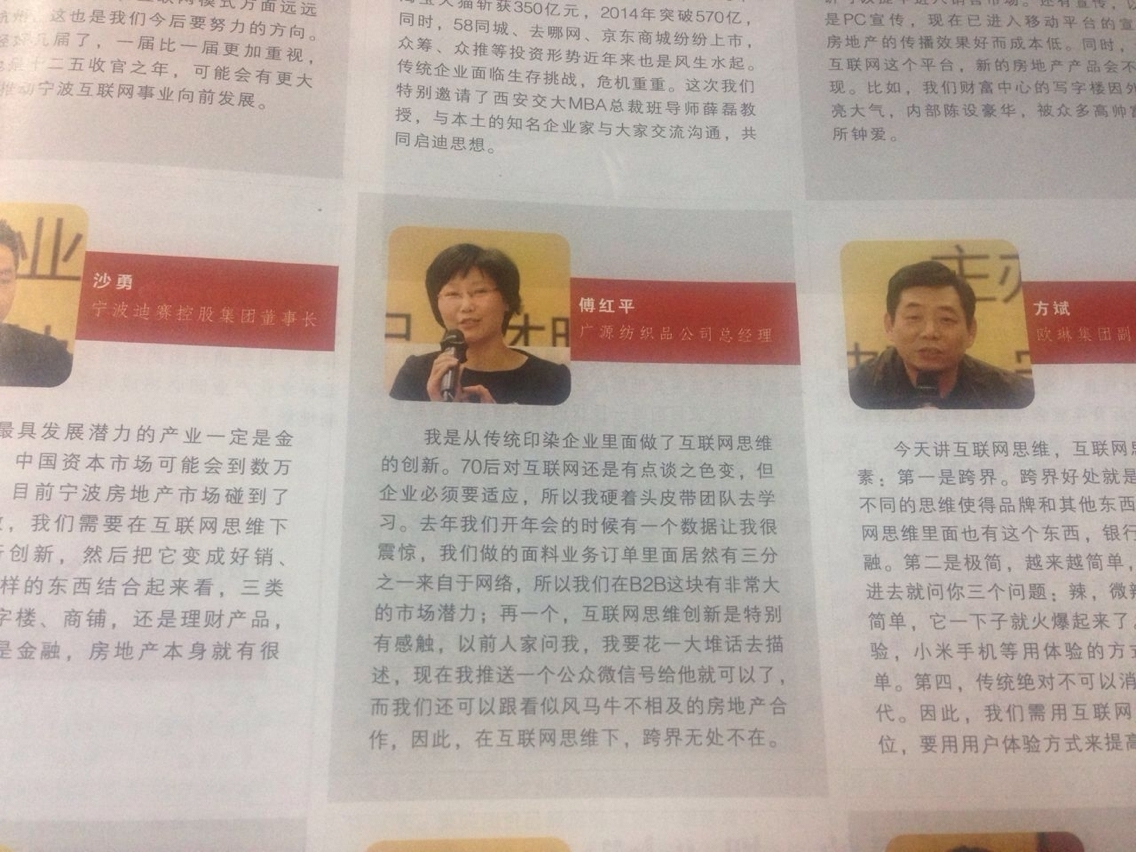 互联网模式方面远远
这也是我们今后要努力的方向。
几届了，一届比一届更加重视，
十二五收官之年，可能会有更大
推动宁波互联网事业向前发展。
淘宝天猫斩获350亿元，2014年突破570亿，
同时，58同城、去哪网、京东商城纷纷上市，
众筹、众推等投资形势近年来也是风生水起。
传统企业面临生存挑战，危机重重。这次我们
特别邀请了西安交大MBA总裁班导师薛磊教
授，与本土的知名企业家与大家交流沟通，共
同启迪思想。
是PC宣传，现在已进入移动平台的宣
房地产的传播效果好而成本低。同时，
互联网这个平台，新的房地产产品会不
现。比如，我们财富中心的写字楼因外
亮大气，内部陈设豪华，被众多高帅富
所钟爱。
业
沙勇
宁波迪赛控股集团董事长
最具发展潜力的产业一定是金
中国资本市场可能会到数万
目前宁波房地产市场碰到了
，我们需要在互联网思维下
创新，然后把它变成好销、
样的东西结合起来看，三类
字楼、商铺，还是理财产品，
是金融，房地产本身就有很
傅红平
广源纺织品公司总经理
我是从传统印染企业里面做了互联网思维
的创新。70后对互联网还是有点谈之色变，但
企业必须要适应，所以我硬着头皮带团队去学
习。去年我们开年会的时候有一个数据让我很
震惊，我们做的面料业务订单里面居然有三分
之一来自于网络，所以我们在B2B这块有非常大
的市场潜力；再一个，互联网思维创新是特别
有感触，以前人家问我，我要花一大堆话去描
述，现在我推送一个公众微信号给他就可以了，
而我们还可以跟看似风马牛不相及的房地产合
作，因此，在互联网思维下，跨界无处不在。
主办
方斌
欧琳集团副
今天讲互联网思维，互联网思
素：第一是跨界。跨界好处就是
不同的思维使得品牌和其他东西
网思维里面也有这个东西，银行
融。第二是极简，越来越简单，
进去就问你三个问题：辣，微辣
简单，它一下子就火爆起来了
验，小米手机等用体验的方式
单。第四，传统绝对不可以消
代。因此，我们需用互联网
位，要用用户体验方式来提高